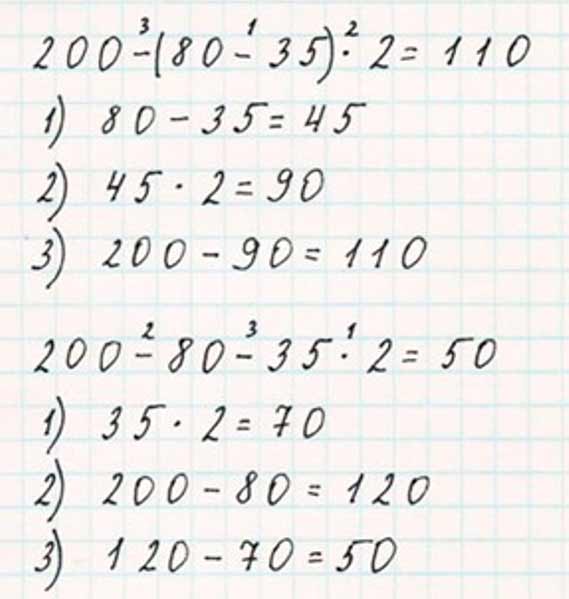 200-(80-35)·2=110
1) 80-35=45
2) 45·2=90
3) 200-90=110
200-80-35·2=50
1) 35·2=70
2) 200-80=120
3) 120-70=50